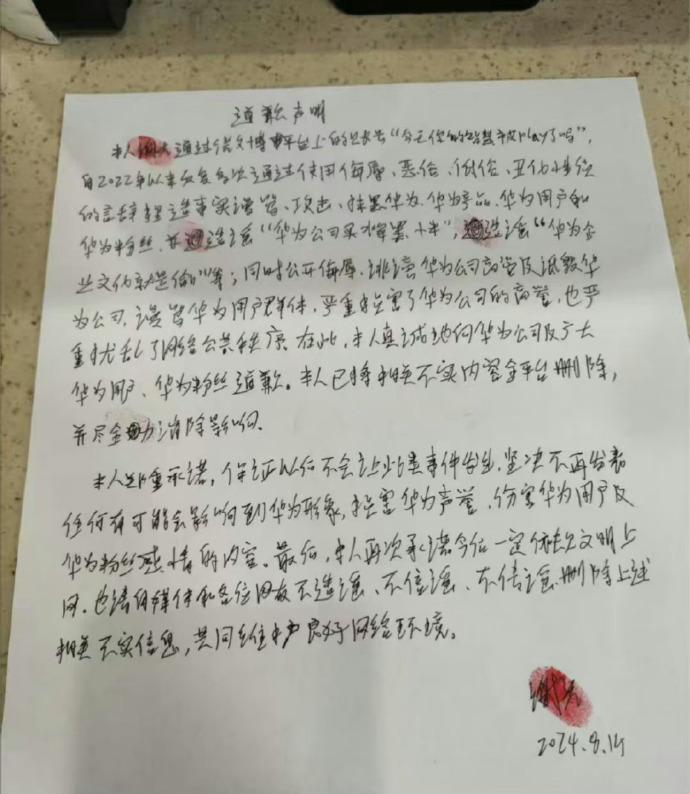 道歉声明
本人通过微博平台上的账号“今天你的智慧平板play了吗”，
自2022年以来反复多次通过使用侮辱、恶俗、低俗、丑化性质
的言辞造事实谩骂、攻击、抹黑华为、华为产品、华为用户和
华为粉丝，并造谣“华为公司买水军”，造谣“华为企
业文化就是偷”等；同时公开侮辱、诽谤华为公司高管及诋毁华
为公司，谩骂华为用户群体，严重损害了华为公司的商誉，也严
重扰乱了网络公共秩序。在此，本人真诚地向华为公司及广大
华为用户、华为粉丝道歉。本人已将相关不实内容全平台删除，
并尽全力消除影响。
本人郑重承诺，保证以后不会让此类事件发生，坚决不再发表
任何有可能会影响到华为形象，损害华为声誉、伤害华为用户及
华为粉丝感情的内容。最后，本人再次承诺今后一定依法文明上
网。也请自媒体和各位网友不造谣、不信谣、不传谣，删除上述
相关不实信息，共同维护良好网络环境。
2024.8.14